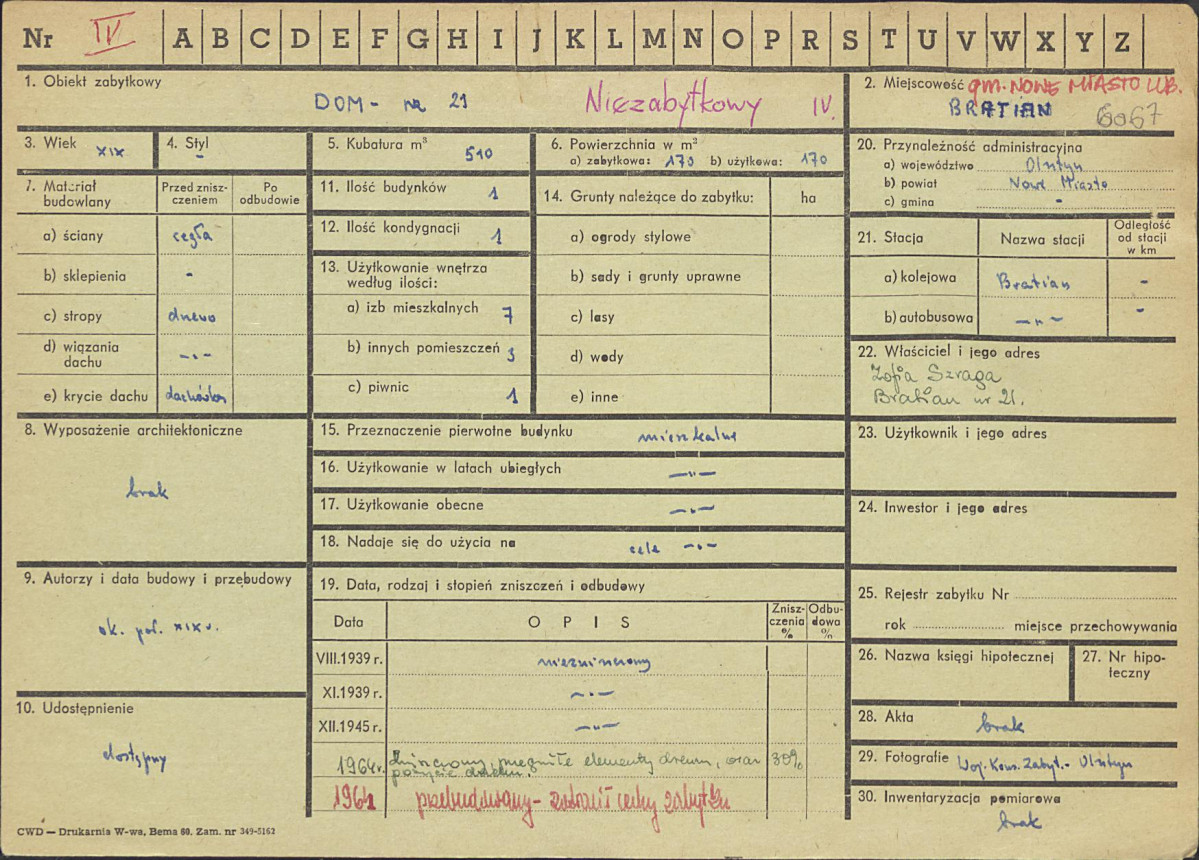 Nr IV A B C D E F G H I J K L M N O P R S T U V W X Y Z
1. Obiekt zabytkowy
DOM - nr 21 Niezabytkowy IV.
2. Miejscowość gm. NOWE MIASTO LUB.
BRATIAN 6067
3. Wiek XIX
4. Styl -
5. Kubatura m³ 510
6. Powierzchnia w m²
a) zabytkowa: 170 b) użytkowa: 170
20. Przynależność administracyjna
a) województwo Olsztyn
b) powiat Nowe Miasto
c) gmina -
7. Materiał budowlany
Przed zniszczeniem
Po odbudowie
a) ściany cegła
b) sklepienia -
c) stropy drewno
d) wiązania dachu -„-
e) krycie dachu dachówka
11. Ilość budynków 1
12. Ilość kondygnacji 1
13. Użytkowanie wnętrza
według ilości:
a) izb mieszkalnych 7
b) innych pomieszczeń 3
c) piwnic 1
14. Grunty należące do zabytku: ha
a) ogrody stylowe
b) sady i grunty uprawne
c) lasy
d) wody
e) inne
21. Stacja Nazwa stacji Odległość od stacji w km
a) kolejowa Bratian -
b) autobusowa -„- -
22. Właściciel i jego adres
Zofia Szraga
Bratian nr 21.
8. Wyposażenie architektoniczne
brak
15. Przeznaczenie pierwotne budynku mieszkalne
16. Użytkowanie w latach ubiegłych -„-
17. Użytkowanie obecne -„-
18. Nadaje się do użycia na cele -„-
23. Użytkownik i jego adres
24. Inwestor i jego adres
9. Autorzy i data budowy i przebudowy
ok. poł. XIX w.
19. Data, rodzaj i stopień zniszczeń i odbudowy
Data OPIS Zniszczenia % Odbudowa %
VIII.1939 r. niezniszczony
XI.1939 r. -„-
XII.1945 r. -„-
1964r. zniszczony, przegniłe elementy drewn, oraz 30%
pokrycie dachu.
1964 przebudowany - zatracił cechy zabytku
25. Rejestr zabytku Nr
rok miejsce przechowywania
26. Nazwa księgi hipotecznej
27. Nr hipoteczny
10. Udostępnienie
dostępny
28. Akta brak
29. Fotografie Woj. Kons. Zabyt. - Olsztyn
30. Inwentaryzacja pomiarowa
brak
CWD — Drukarnia W-wa, Bema 60. Zam. nr 349-5162